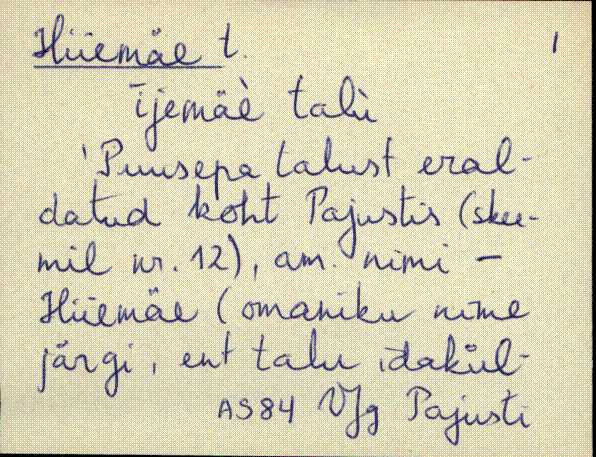 Hiiemäe t. 1
ījemäè talù
'Puusepa talust eral-
datud koht Pajustis (skee-
mil nr. 12), am. nimi -
Hiiemäe (omaniku nime
järgi, ent talu idakül-
AS84 VJg Pajusti